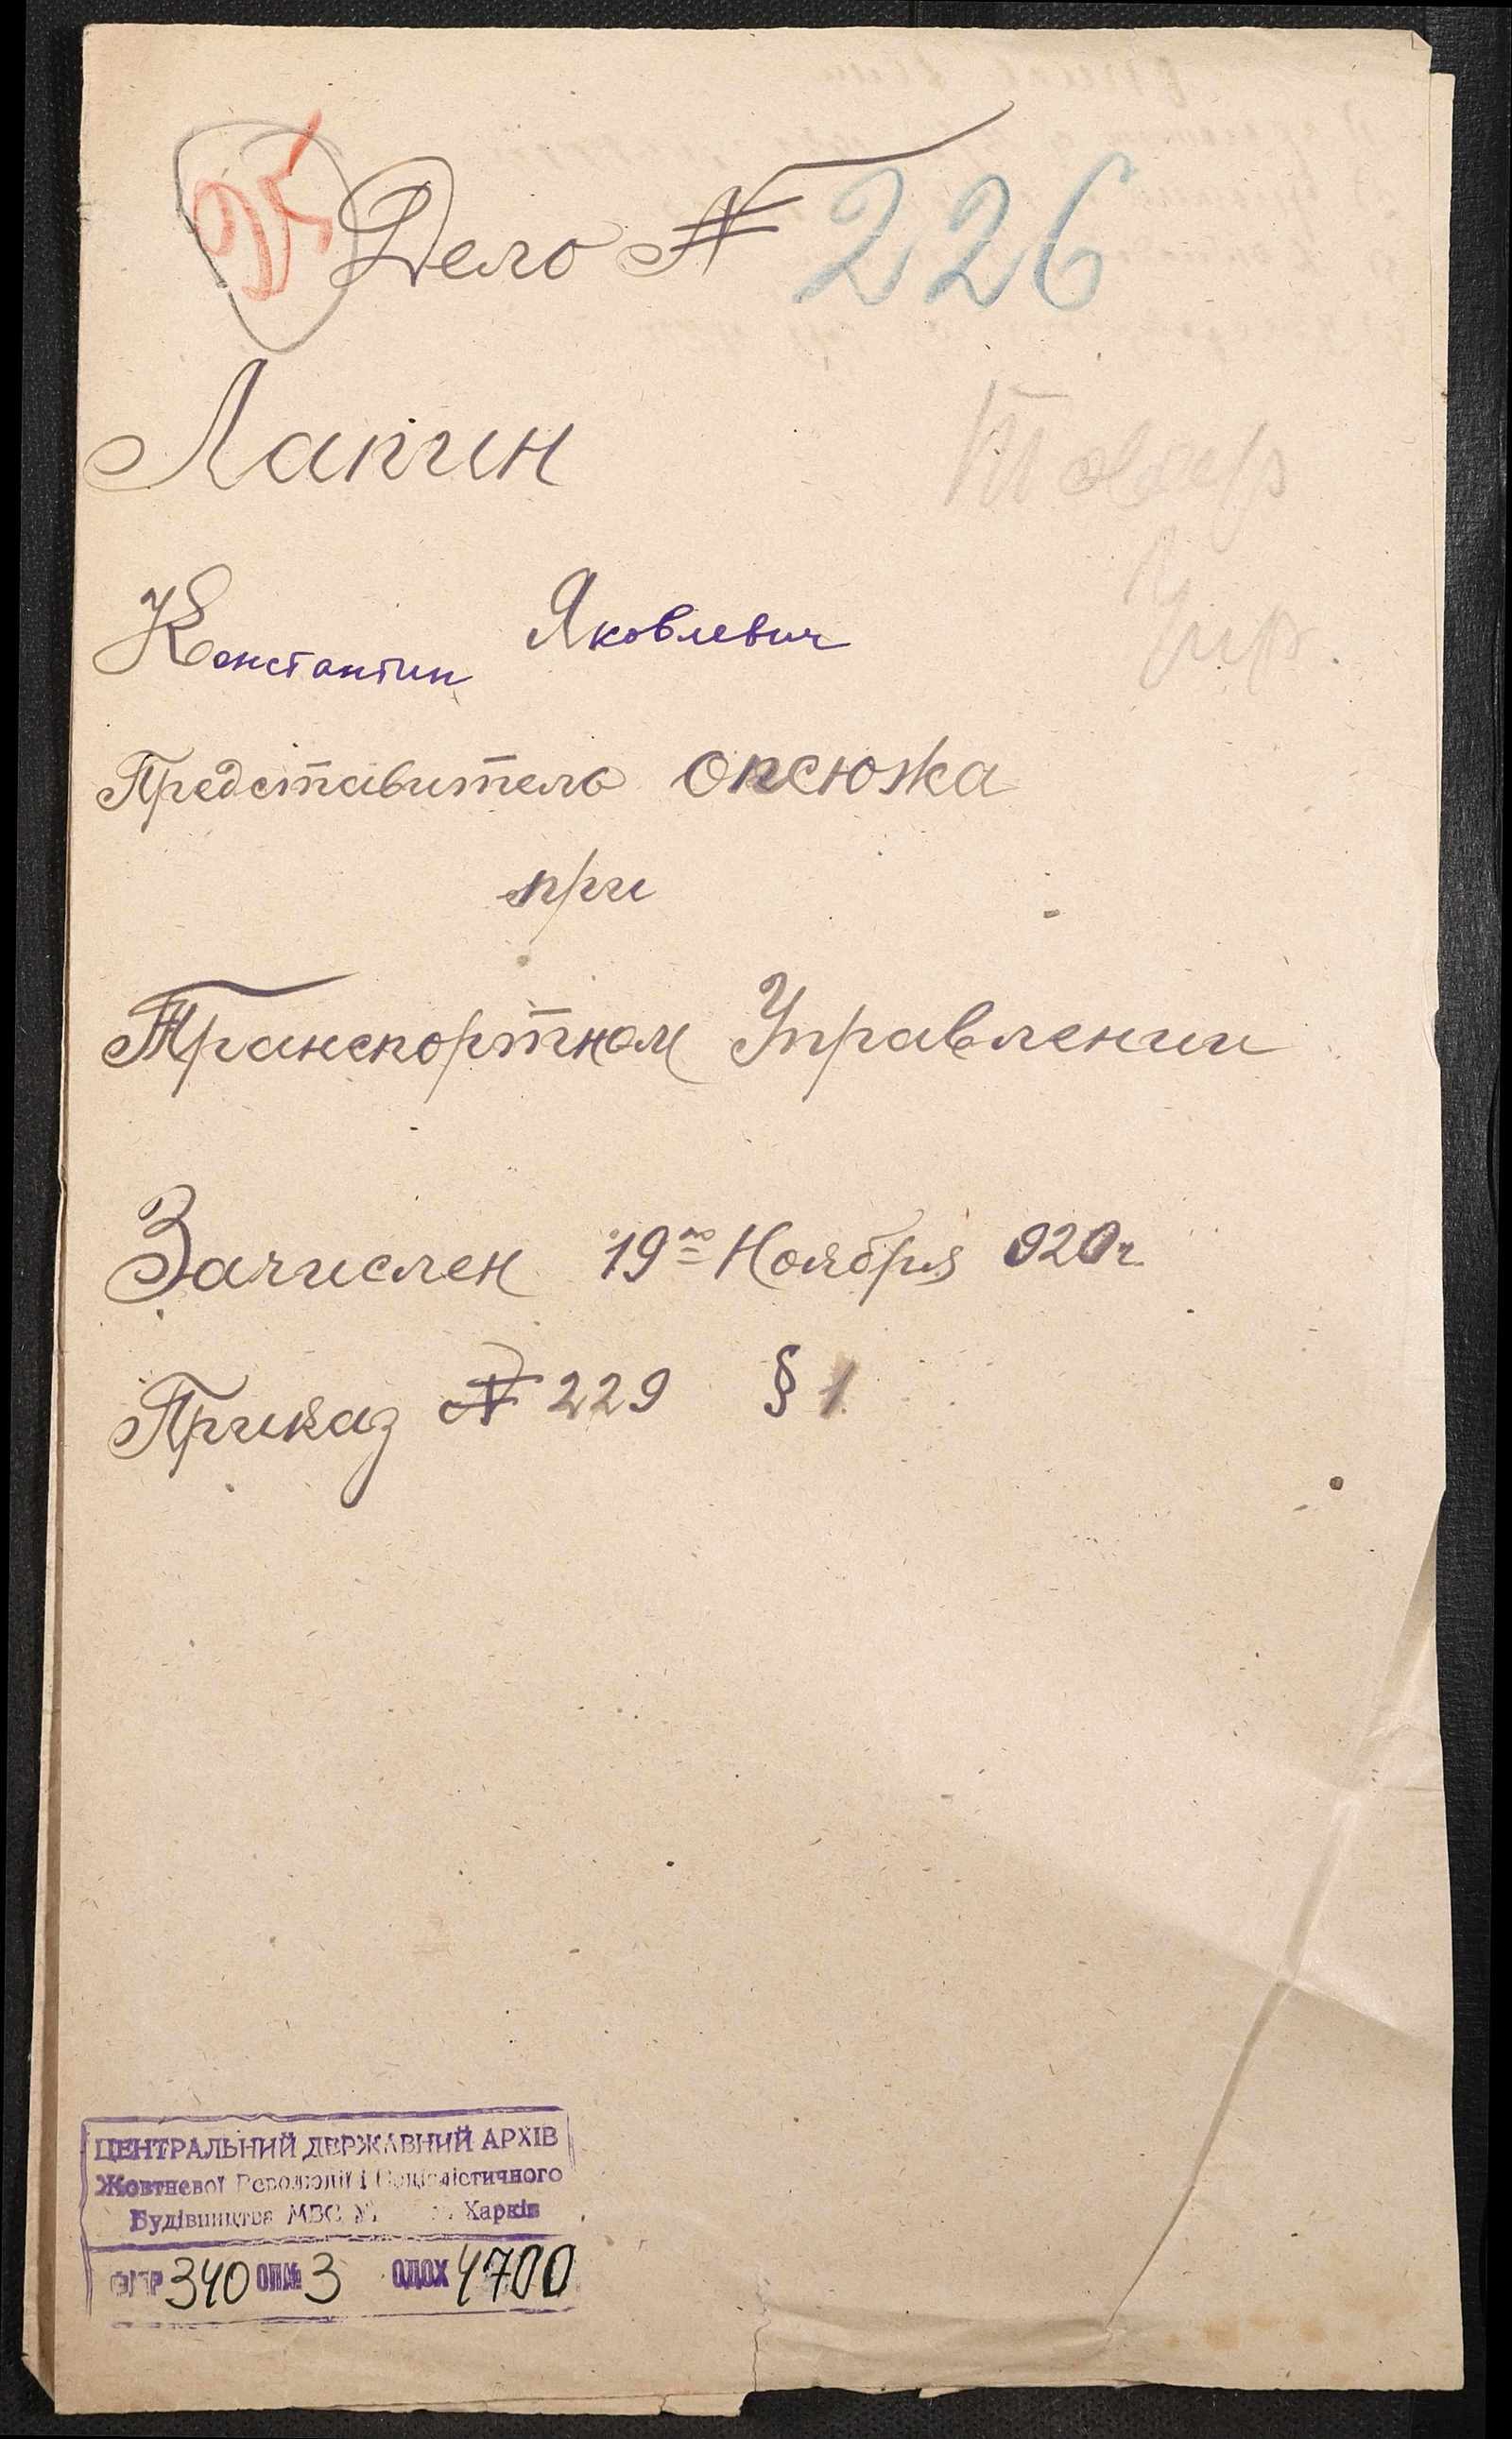 Дело № 226
Лапин
Товар
Упр.
Константин Яковлевич
Представитель Опсюжа
при
Транспортном Управлении
Зачислен 19го Ноября 920 г.
Приказ № 229 § 1.
ЦЕНТРАЛЬНИЙ ДЕРЖАВНИЙ АРХІВ
Жовтневої Революції і Соціалістичного
Будівництва МВС Харків
340 ОП№ 3 ОДОХ 4700